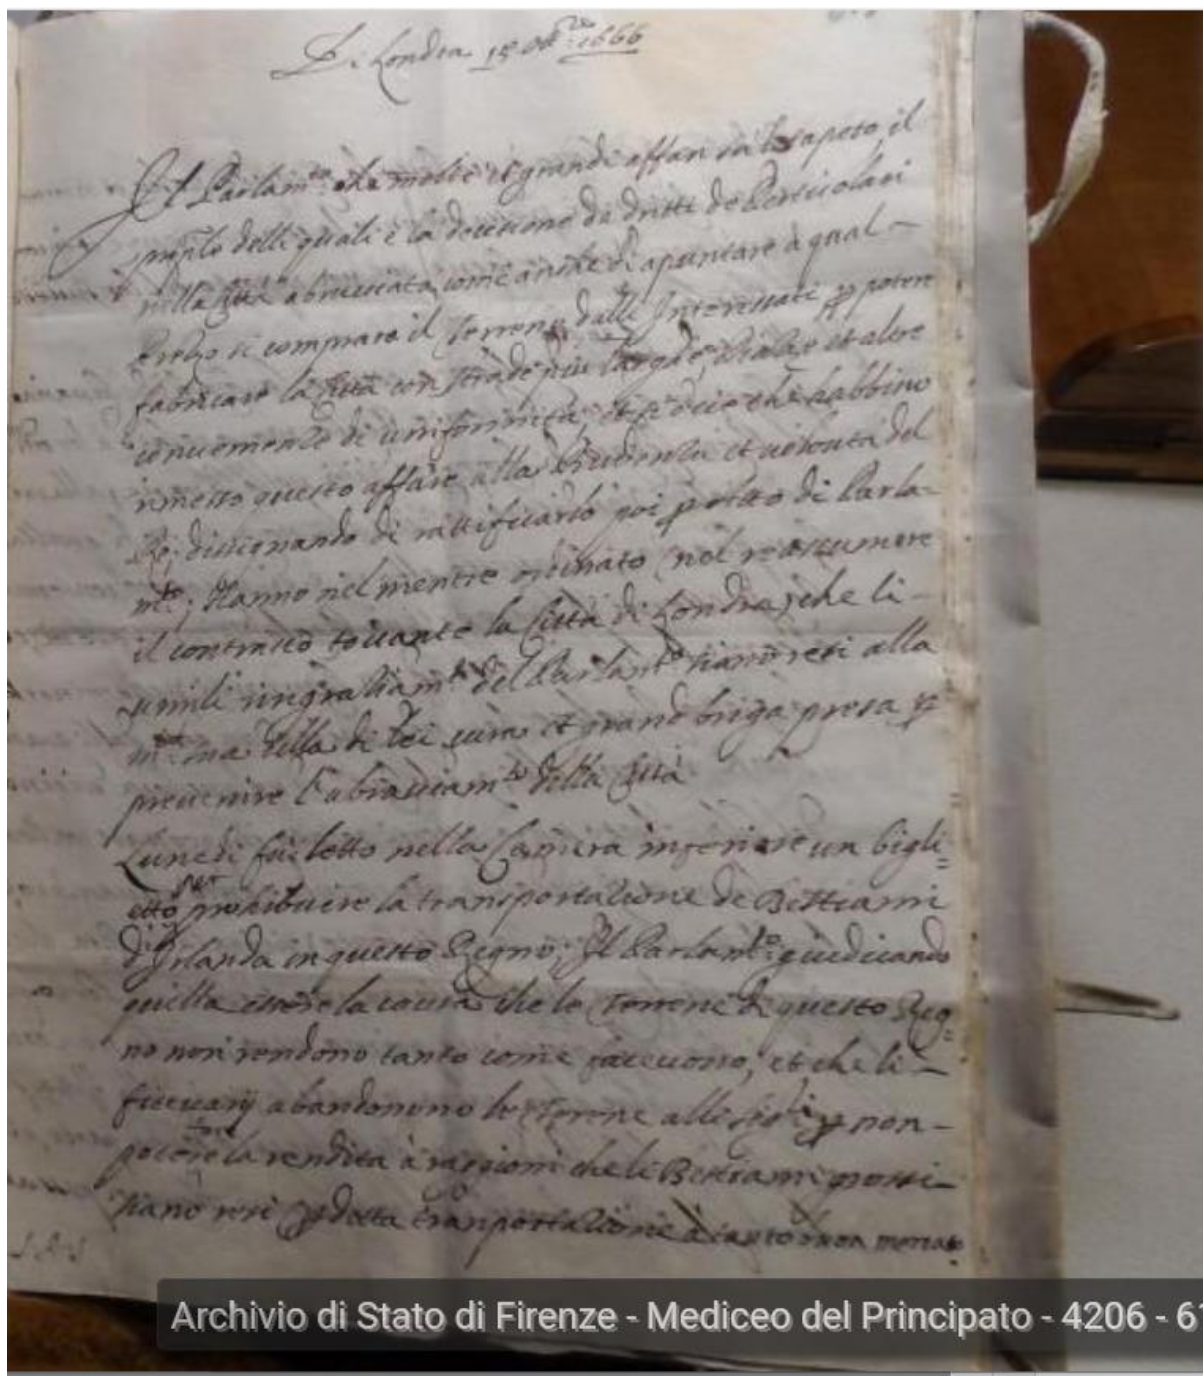 Di Londra 15 Ott.re 1666
Il Parlam.to che molti et grandi affari hà le sapeto, il
delli quali è la decisione de dritti de Perticolari
nella Città abrusciata, come anche di apuntare à qual
Prezo si comprare il Terreno dalli Interessati p potere
fabricare la Città con strade più larghe, et altre
di uniformità, et si dice che habbino
rimesso questo affare alla Prudenza et volontà del
Rè, dissignando di rattificarlo poi p Atto di Parla-
m.to; Hanno nel mentre ordinato nel reassumere
il contratto toccante la Città di Londra, che li
umili ringratiam.ti del Parlam.to siano resi alla
m.tà sua della di lei cura et grande briga presa p
prevenire l'abrusciam.to della Città
Lunedì fu letto nella Camera inferiore un bigli-
etto per prohibuire la transportatione de Bestiami
d'Irlanda in questo Regno; Il Parlam.to giudicando
quella essere la causa che le Terrene di questo Reg-
no non rendono tanto come facevono, et che li
abandonino le Terrene alli p non
la rendita à raggioni che li Bestiami
siano resi p detta transportatione à tanto buon mercato
Archivio di Stato di Firenze - Mediceo del Principato - 4206 - 6